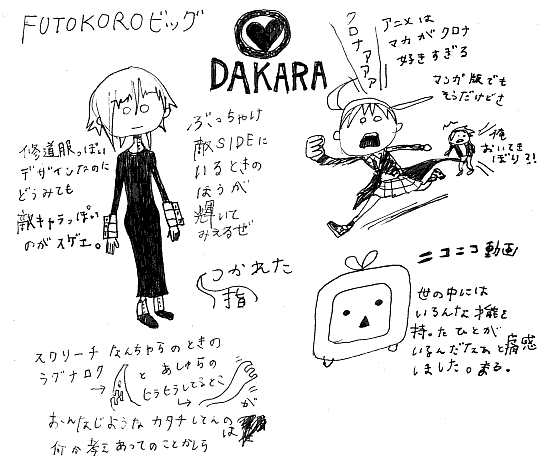 FUTOKOROビッグ
DAKARA
クロナァァァ
アニメは
マカがクロナ
好きすぎる
マンガ版でも
そうだけどさ
俺
おいてき
ぼり?!
修道服っぽい
デザインなのに
どうみても
敵キャラっぽい
のがスゲェ。
ぶっちゃけ
敵SIDEに
いるときの
ほうが
輝いて
みえるぜ
つかれた
指
ニコニコ動画
世の中には
いろんな才能を
持ったひとが
いるんだなぁと痛感
しました。まる。
スクリーチ なんちゃらのときの
ラグナロク
→
と
あしゅらの
ヒラヒラしてるとこ
→
が
おんなじような カタチしてんのは
何か考えあってのことかしら